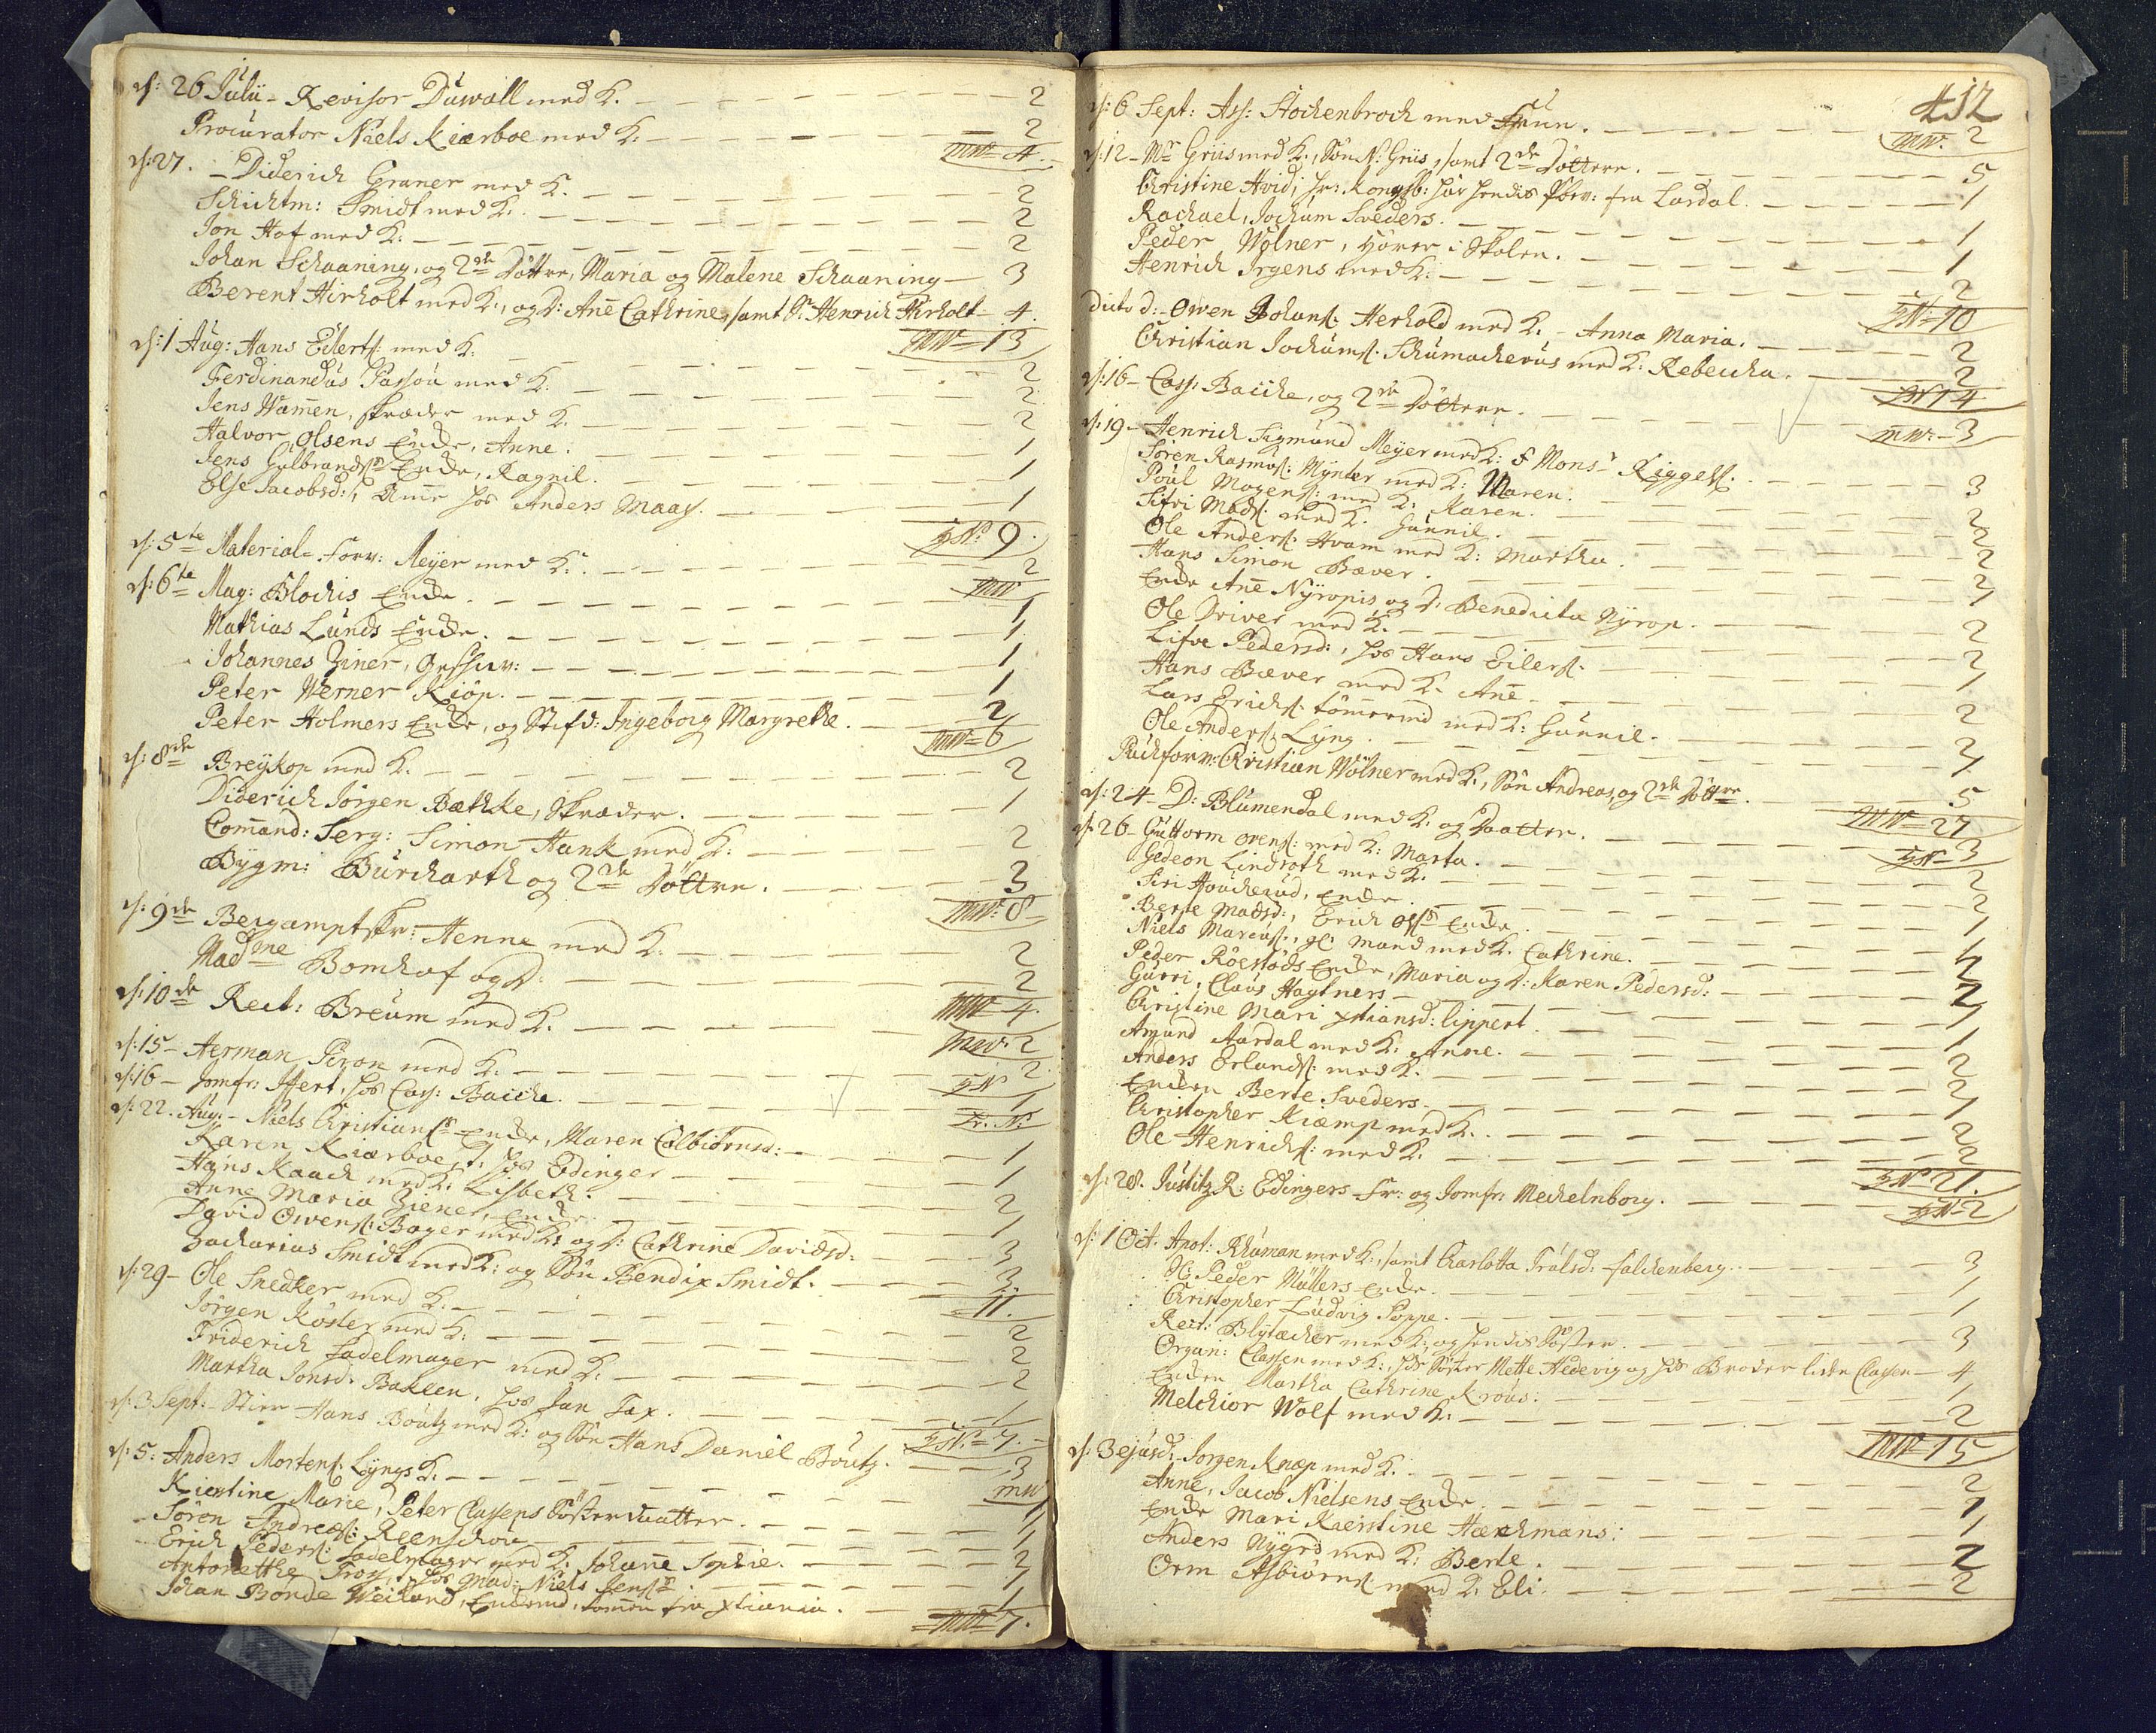 d: 26 Julii - Revisor Duwall med K. - 2
Procurator Niels Kiærboe med K: - 2
MW= 4.
d: 27. - Diderich Graner med K. - 2
Schichtm: Smidt med K. - 2
Jon Hof med K: - 2
Johan Schaaning, og 2de Döttre, Maria og Malene Schaaning - 3
Berent Hirholt med K:, og D: Añe Cathrine, samt S. Henrich Hirholt - 4.
MW= 13
d: 1 Aug: Hans Eilertß: med K. - 2
Ferdinandus Passou med K. - 2
Jens Wamen, skræder med K. - 2
Halvor Olsens Encke, Anne. - 1
Jens Gulbrandßs Encke, Ragnil. - 1
Else Jacobsd:, Ame hos Anders Maas. - 1
No: 9.
d: 5te Material-Forv: Meyer med K: - 2
MW
d: 6te Mag: Blochis Encke. - 1
Mathias Lunds Encke. - 1
Johannes Ziner, - 1
Peter Werner Kiöp. - 1
Peter Holmers Encke, og Stifd: Ingeborg Margrethe. - 2
MW= 6
d: 8de Breykop med K. - 2
Diderich Jörgen Bæthke, Skræder. - 1
Comand: Serg: Simon Hank med K: - 2
Bygm: Burcharth og 2de Döttre. - 3
MW: 8
d: 9de Bergamptskr: Henne med K: - 2
Madme Bomhof og D: - 2
MW= 4.
d: 10de Rect: Breum med K. - 2
MW: 2
d: 15 - Herman Piron med K: - 2
d: 16 - Jomfr: hos Cass: Baiche. - 1
d: 22. Aug: - Niels Christianßs Encke, Maren Colbiörnsd: - 1
Karen Kiærboe, hos Edinger - 1
Hans Kaach med K: Lisbeth. - 2
Anne Maria Ziener, Encke - 1
David Owenß: Bager med K: og D: Cathrine Davidsd: - 3
Zacharias Smidt med K: og Sön Bendix Smidt. - 3.
= 11.
d: 29 - Ole Snedker med K. - 2
Jörgen Köster med K: - 2
Friderich Sadelmager med K: - 2
Martha Jonsd: Bakken, hos Jan Fax. - 1
= 7. -
d: 3 Sept: - Stier Hans Boutz med K: og Sön Hans Daniel Boutz. - 3
MW
d: 5: Anders Mortenß: Lyngs K: - 1
Kierstine Marie, Peter Classens Söster daatter. - 1
Sören Andreæß: Reenschou - 1
Erich Pederß: Sadelmager med K. Johanne Sophie. - 2
Antonetthe Troy, hos Mad: Niels Jenßs - 1
Johan Bonde Weiland, Enckemd, komen fra xtiania. - 1
= MW= 7.
412
d: 6 Sept: Ass: Stockenbroch med Frue. - 2
MW.
d: 12 - Mr Griis med K:, Sön N: Griis, samt 2de Döttere. - 5
Christine Hvid, fra Lardal. - 1
Rachael, Jochum Sveders. - 1
Peder Wölner, Hörer i Skolen. - 1
Henrich Irgens med K: - 2
= 10
Dicto d: - Owen Johanß: Herhold med K. - Anna Maria. - 2
Christian Jochumß: Schumacherus med K: Rebecka. - 2
4
d: 16 - Cass: Baiche, og 2de Döttere. - 3
MW: - 3
d: 19 - Henrich Sigmund Meyer med K: & Monsr Riggelß. - 3
Sören Rasmusß: Mynter med K: Maren. - 2
Poul Mogenß: med K: Karen. - 2
Sifri Madß: med K. Gunnil. - 2
Ole Anderß: Hvam med K: Martha. - 2
Hans Simon Bæver. - 1
Encke Añe Nyropis, og D: Benedicta Nyrop. - 2
Ole Driver med K. - 2
Lisve Pedersd:, hos Hans Eilerß. - 1
Hans Bæver med K. Añe. - 2
Lars Erichß: tömermd med K: Gunnil. - 2
Ole Anderß: Lyng. - 1
Pachforv: Christian Wölner med K:, Sön Andreas, og 2de Döttre. - 5
MW= 27
d: 24 - D: Blumendal med K. og Daatter. - 3
d: 26 - Guttorm Ovenß: med K: Marta. - 2
Gedeon Lindroth med K. - 2
Siri Houcherud, Encke. - 1
Berte Madsd:, Erich Encke. - 1
Niels Marcusß:, gl. mand med K. Cathrine. - 2
Peder Röestöds Encke, Maria og D: Karen Pedersd: - 2
Gurri, Claus Hagtners - 1
Christine Mari xtiansd: Lippert. - 1
Amund Aardal med K: Anne. - 2
Anders Erlandß: med K. - 2
Encken Berte Sveders. - 1
Christopher Kiæmp med K. - 2
Ole Henrichß: med K. - 2
No 21.
d: 28. Justitz R: Edingers Fr: og Jomfr: Mechelnborg. - 2
d: 1 Oct. Apot: Rhuman med K:, samt Charlotta Trulsd: Falchenberg. - 3
H: Peder Müllers Encke. - 1
Christopher Ludvig Poppe. - 1
Rect: Blytacher med K: og hendes Söster. - 3
Organ: Classen med K:, hs Söster Mette Hedevig og hs Broder liden Classen - 4
Encken Martha Cathrine Krous. - 1
Melchior Wolf med K. - 2
MW= 15
d: 3 ejusd: - Jörgen Knap med K. - 2
Anne, Jacob Nielsens Encke. - 1
Encke Mari Kaerstine Hækmans: - 1
Anders Nygrd med K: Berte. - 2
Orm Asbiörnß: med K. Eli. - 2